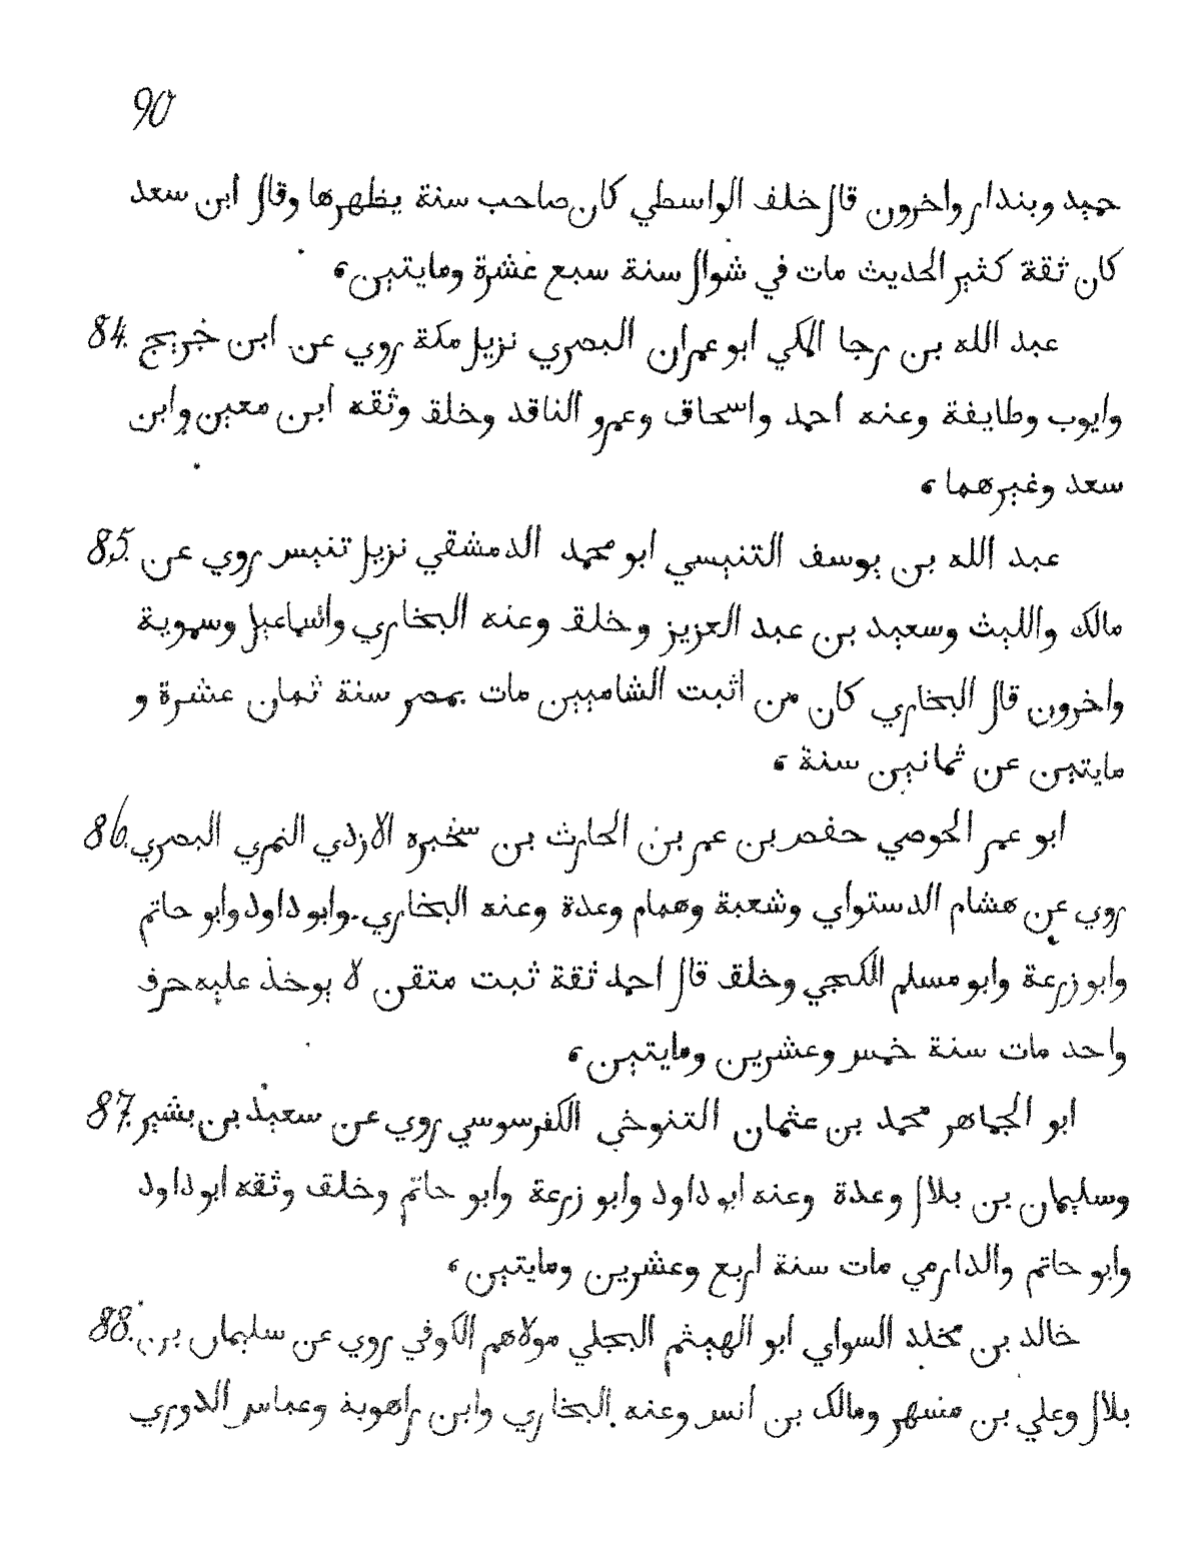 90
حميد وبندار واخرون قال خلف الواسطي كان صاحب سنة يظهرها وقال ابن سعد
كان ثقة كثير الحديث مات في شوال سنة سبع عشرة ومايتين،
84. عبد الله بن رجا المكي ابو عمران البصري نزيل مكة روي عن ابن خريج
وايوب وطايفة وعنه احمد واسحاق وعمرو الناقد وخلق وثقه ابن معين وابن
سعد وغيرهما،
85. عبد الله بن يوسف التنيسي ابو محمد الدمشقي نزيل تنيس روي عن
مالك والليث وسعيد بن عبد العزيز وخلق وعنه البخاري واسماعيل وسموية
واخرون قال البخاري كان من اثبت الشاميين مات بمصر سنة ثمان عشرة و
مايتين عن ثمانين سنة،
86. ابو عمر الحوصي حفص بن عمر بن الحارث بن سخبره الازدي النمري البصري
روي عن هشام الدستواي وشعبة وهمام وعدة وعنه البخاري. وابو داود وابو حاتم
وابو زرعة وابو مسلم الكجي وخلق قال احمد ثقة ثبت متقن لا يوخذ عليه حرف
واحد مات سنة خمس وعشرين ومايتين،
87. ابو الجماهر محمد بن عثمان التنوخي الكفرسوسي روي عن سعيد بن بشير
وسليمان بن بلال وعدة وعنه ابو داود وابو زرعة وابو حاتم وخلق وثقه ابو داود
وابو حاتم والدارمي مات سنة اربع وعشرين ومايتين،
88. خالد بن مخلد السواي ابو الهيثم البجلي مولاهم الكوفي روي عن سليمان بن
بلال وعلي بن منسهر ومالك بن انس وعنه البخاري وابن راهوية وعباس الدوري